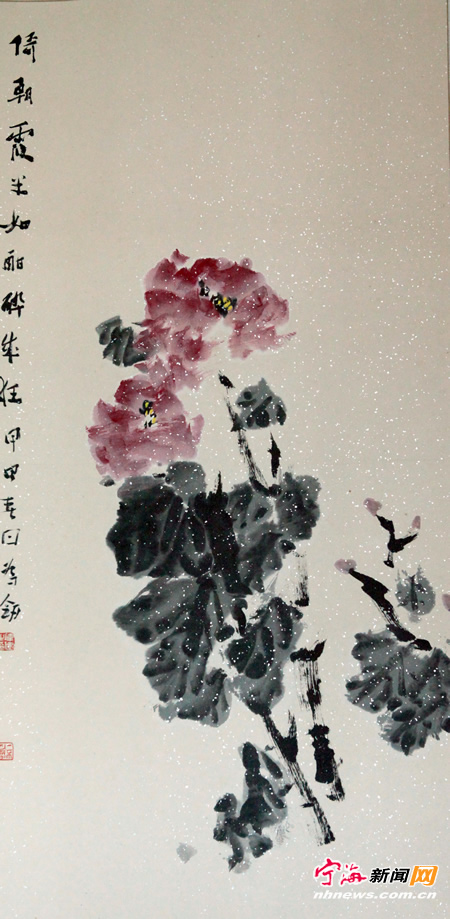 倚朝霞半如酣醉成狂 甲申春日
宁海新闻网
www.nhnews.com.cn